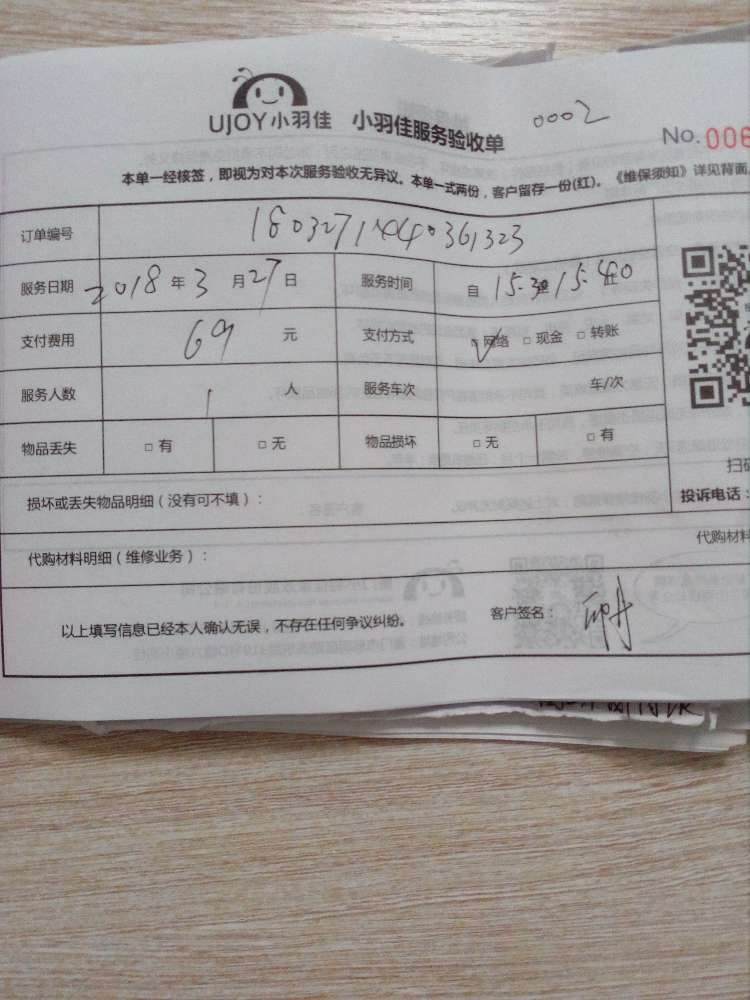 UJOY小羽佳 小羽佳服务验收单 0002 No.006
本单一经核签，即视为对本次服务验收无异议。本单一式两份，客户留存一份(红)。《维保须知》详见背面。
订单编号 18032714440361323
服务日期 2018年3月27日 服务时间 自 15:30 15:40
支付费用 69 元 支付方式 网络 □ 现金 □ 转账
服务人数 1 人 服务车次 车/次
物品丢失 □ 有 □ 无 物品损坏 □ 无 □ 有
扫码
损坏或丢失物品明细（没有可不填）： 投诉电话：
代购材料明细（维修业务）： 代购材料
以上填写信息已经本人确认无误，不存在任何争议纠纷。 客户签名：